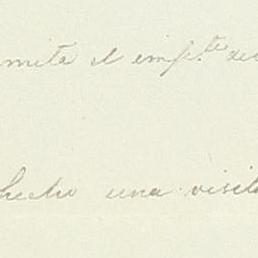 mita el imp.te de
hecho una visita